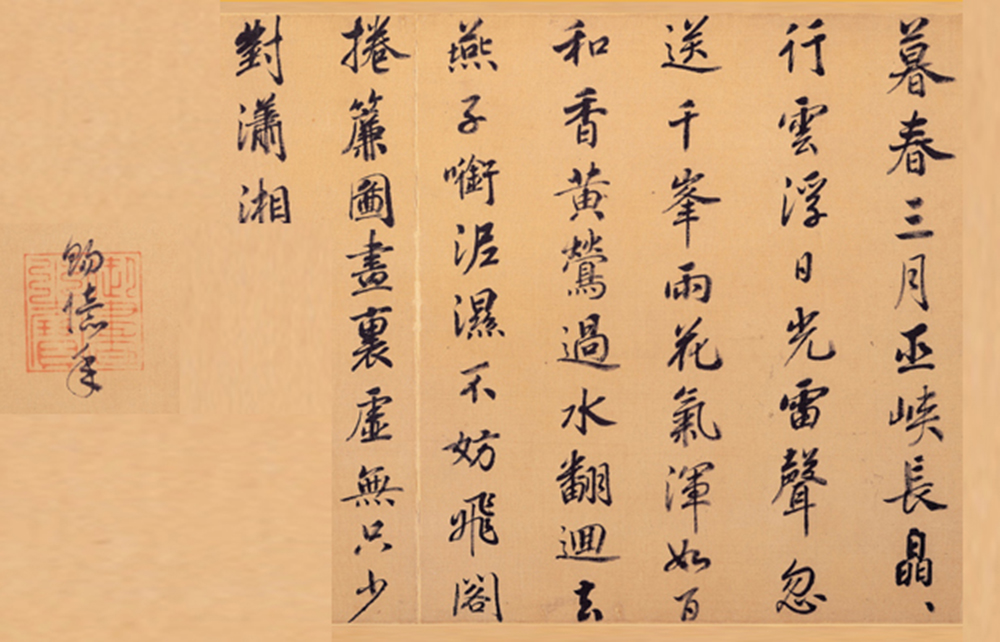 暮春三月巫峽長晶、
行雲浮日光雷聲忽
送千峯雨花氣渾如百
和香黃鶯過水翻迴去
燕子㘅泥濕不妨飛閣
捲簾圖畫裏虛無只少
對瀟湘
賜億年
御書之寶